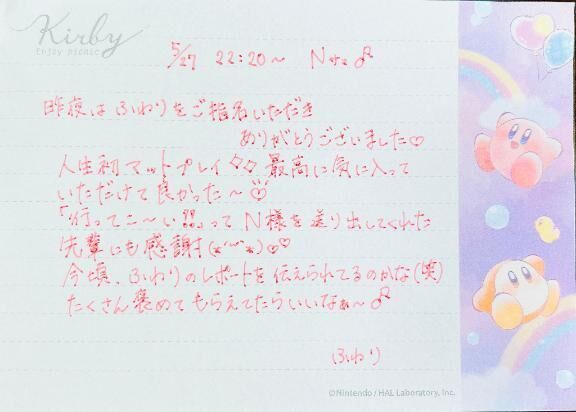 Kirby
Enjoy picnic
5/27 22:20〜 Nさま♂
昨夜はふわりをご指名いただき
ありがとうございました♡
人生初マットプレイ 最高に気に入って
いただけて良かった〜
「行ってこ〜い!!」って N様を送り出してくれた
先輩にも感謝す(*˘︶˘*)♡♡
今頃、ふわりのレポートを伝えられてるのかな(笑)
たくさん褒めてもらえてたらいいなぁ〜♂
ふわり
©Nintendo / HAL Laboratory, Inc.